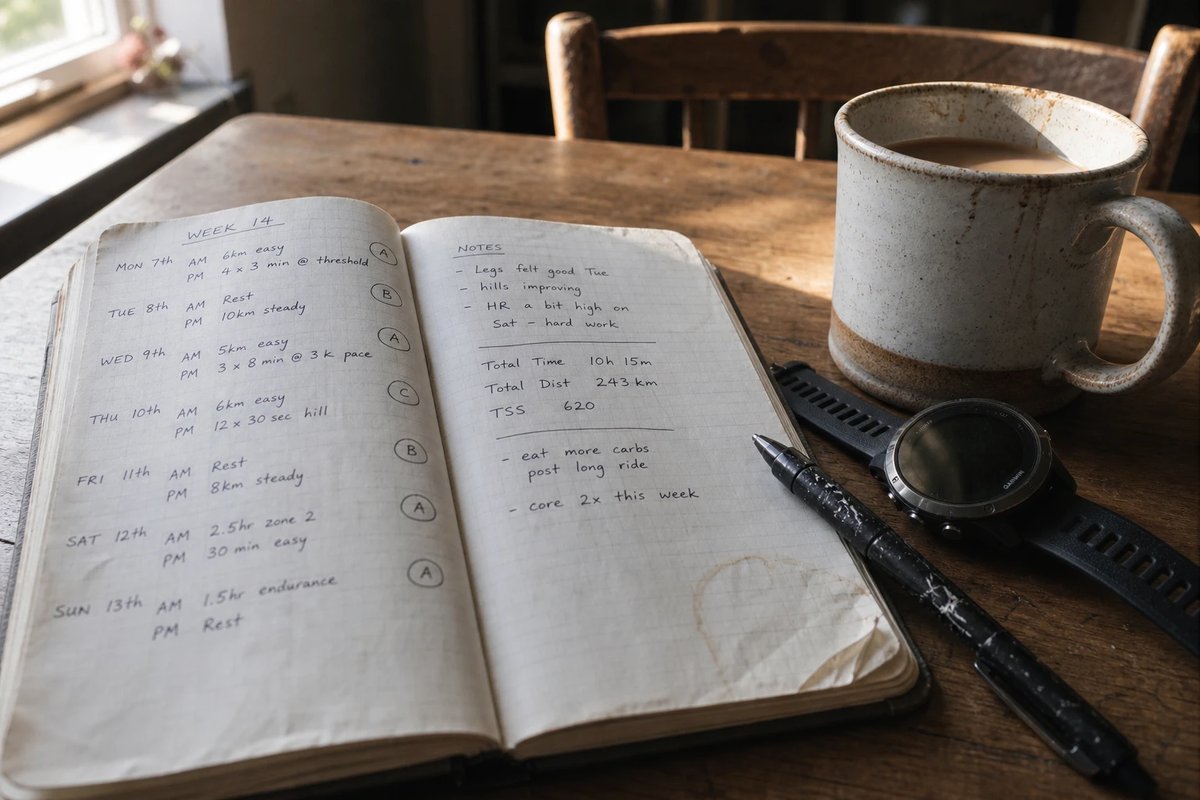 WEEK 14
MON 7th AM 6km easy
PM 4 x 3 min @ threshold A
TUE 8th AM Rest B
PM 10km steady
WED 9th AM 5km easy A
PM 3 x 8 min @ 3k pace
THU 10th AM 6km easy C
PM 12 x 30 sec hill
FRI 11th AM Rest B
PM 8km steady
SAT 12th AM 2.5hr zone 2 A
PM 30 min easy
SUN 13th AM 1.5hr endurance A
PM Rest
NOTES
- Legs felt good Tue
- hills improving
- HR a bit high on
Sat - hard work
Total Time 10h 15m
Total Dist 243 km
TSS 620
- eat more carbs
post long ride
- core 2x this week
GARMIN